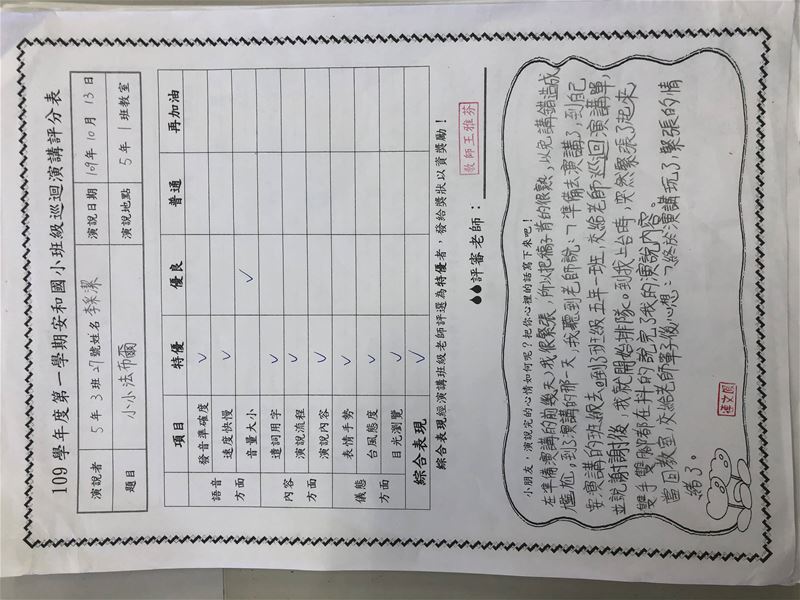 109 學年度第一學期安和國小班級巡迴演講評分表
演說者 5 年 3 班 27 號姓名 李采潔 演說日期 109年 10 月 13 日
題目 小小法布爾 演說地點 5 年 1 班教室
項目 特優 優良 普通 再加油
語音方面 發音準確度 ✓
速度快慢 ✓
音量大小 ✓
內容方面 遣詞用字 ✓
演說流程 ✓
演說內容 ✓
儀態方面 表情手勢 ✓
台風態度 ✓
目光瀏覽 ✓
綜合表現
綜合表現經演講班級老師評選為特優者，發給獎狀以資獎勵！
評審老師：
教師王雅芬
小朋友，演說完的心情如何呢？把你心裡的話寫下來吧！
在準備演講的前幾天，我很緊張，所以把稿子背的很熟，以免講錯造成
尷尬。到了演講的那一天，我聽到老師說：「準備去演講了，到自己
要演講的班級去。」到了班級五年一班，交給老師巡迴演講單，
並說謝謝後，我就開始排隊。到我上台時，突然緊張了起來，
雙手雙腳都在抖的說完了我的演說內容。
當回教室，交給老師單子後心想：「終於演講玩了，緊張的情
緒了。